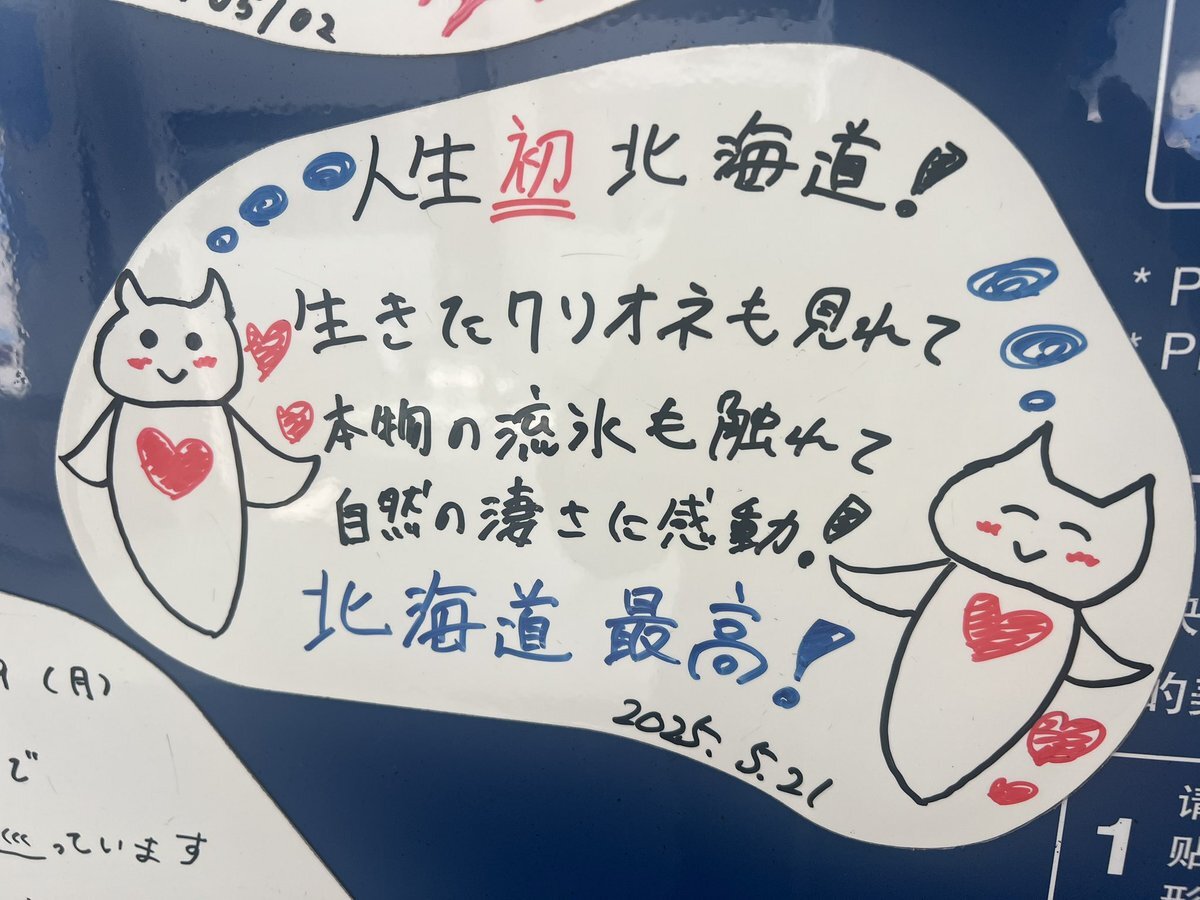 05/02
人生初北海道!
生きたクリオネも見れて
本物の流氷も触れて
自然の凄さに感動!
北海道 最高!
2025.5.21
(月)
で
っています
* P
* P
的
1
请
贴